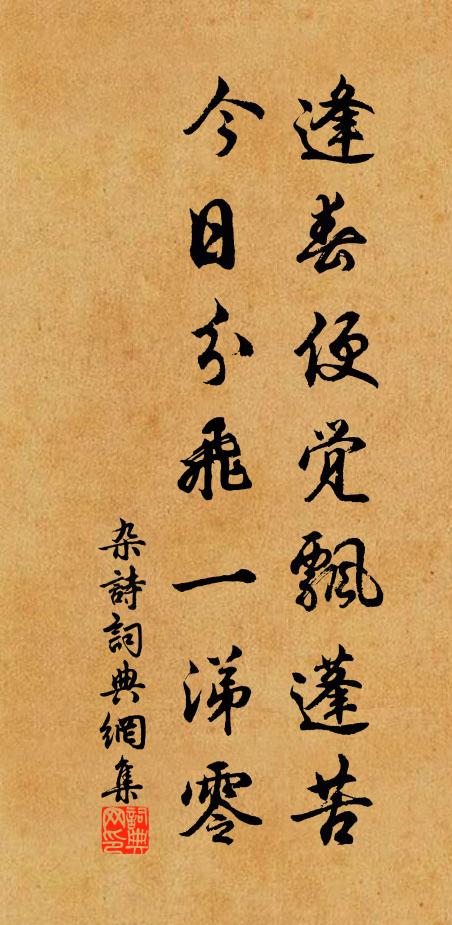 逢春便觉飄蓬苦
今日分飛一涕零
杂詩詞典網集
詞典网印